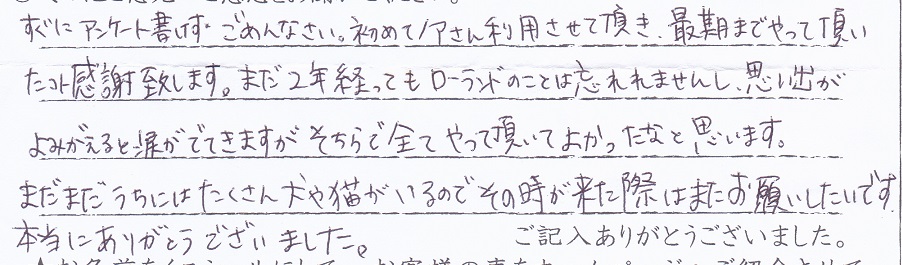 すぐにアンケート書けず ごめんなさい。初めてノアさん利用させて頂き、最期までやって頂い
たコト感謝致します。まだ2年経ってもローランドのことは忘れれませんし、思い出が
よみがえると涙がでてきますが そちらで全て やって頂いてよかったなと思います。
まだまだうちにはたくさん犬や猫がいるのでその時が来た際はまたお願いしたいです
本当にありがとうございました。
ご記入ありがとうございました。